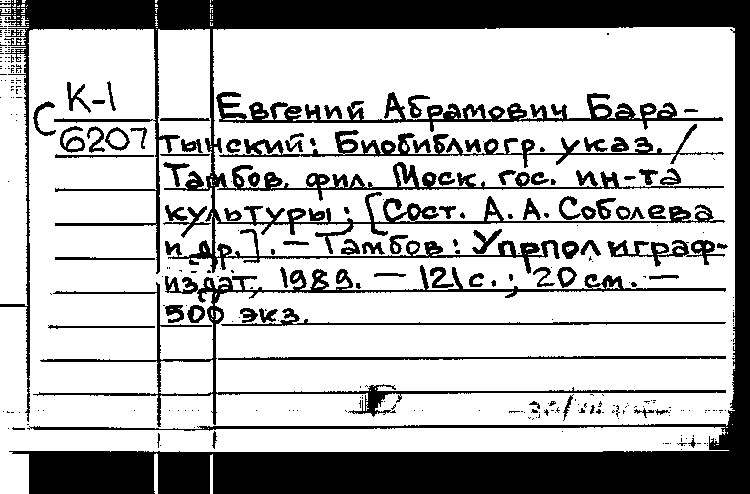 С К-1
6207
Евгений Абрамович Бара-
тынский: Биобиблиогр. указ. /
Тамбов. фил. Моск. гос. ин-та
культуры; [Сост. А. А. Соболева
и др.]. — Тамбов: Упрполиграф-
издат, 1989. — 121 с.; 20 см. —
500 экз.